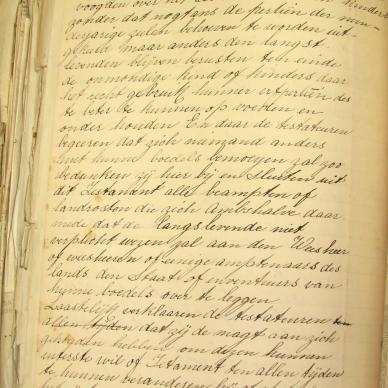 voogden over
zonder dat nogtans de portien der min-
derjarige zulen behoeven te worden uit-
gekeerd maar anders den langst
levenden blijven berusten ten einde
de onmondige kind of kinders daar
het recht gebruik hunner erfportien des
te beter te kunnen op voeden en
onder houden En daar de testateuren
begeren dat zich niemand anders
met hunne boedels bemoeyen zal zoo
bedenken zij hier bij en sluiten uit
dit Testament alle beampten of
landrosten die zich Ambshalve daar
mede dat de langslevende niet
verplicht wezen zal aan den Weesheer
of weesheeren of eenige amptenaars des
lands den Staat of inventuers van
hunne boedels over te leggen
Laastelijk verklaaren de testateuren
allen tijden dat zij de magt aan zich
gehouden hebben om dezen hunnen
uiterste wil of Testament ten allen tijden
te kunnen veranderen